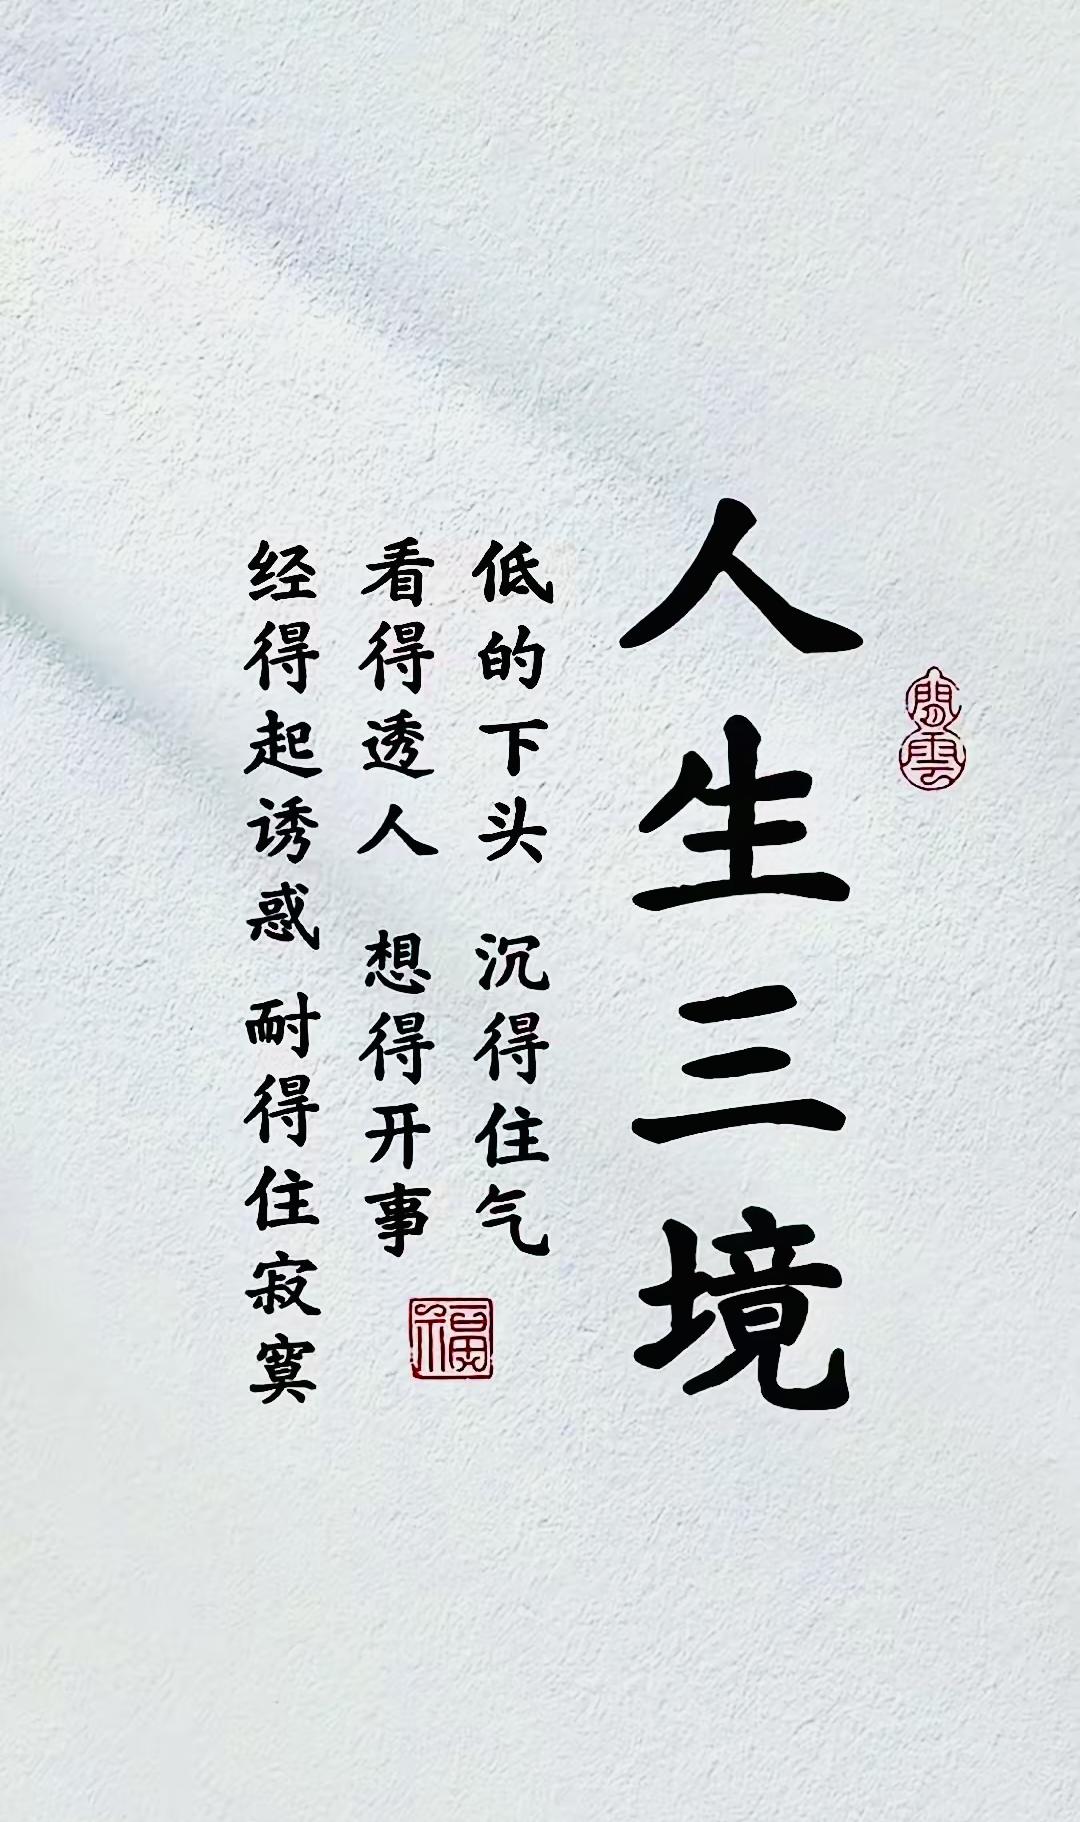 人生三境
閒雲
低的下头 沉得住气
看得透人 想得开事
经得起诱惑 耐得住寂寞
福